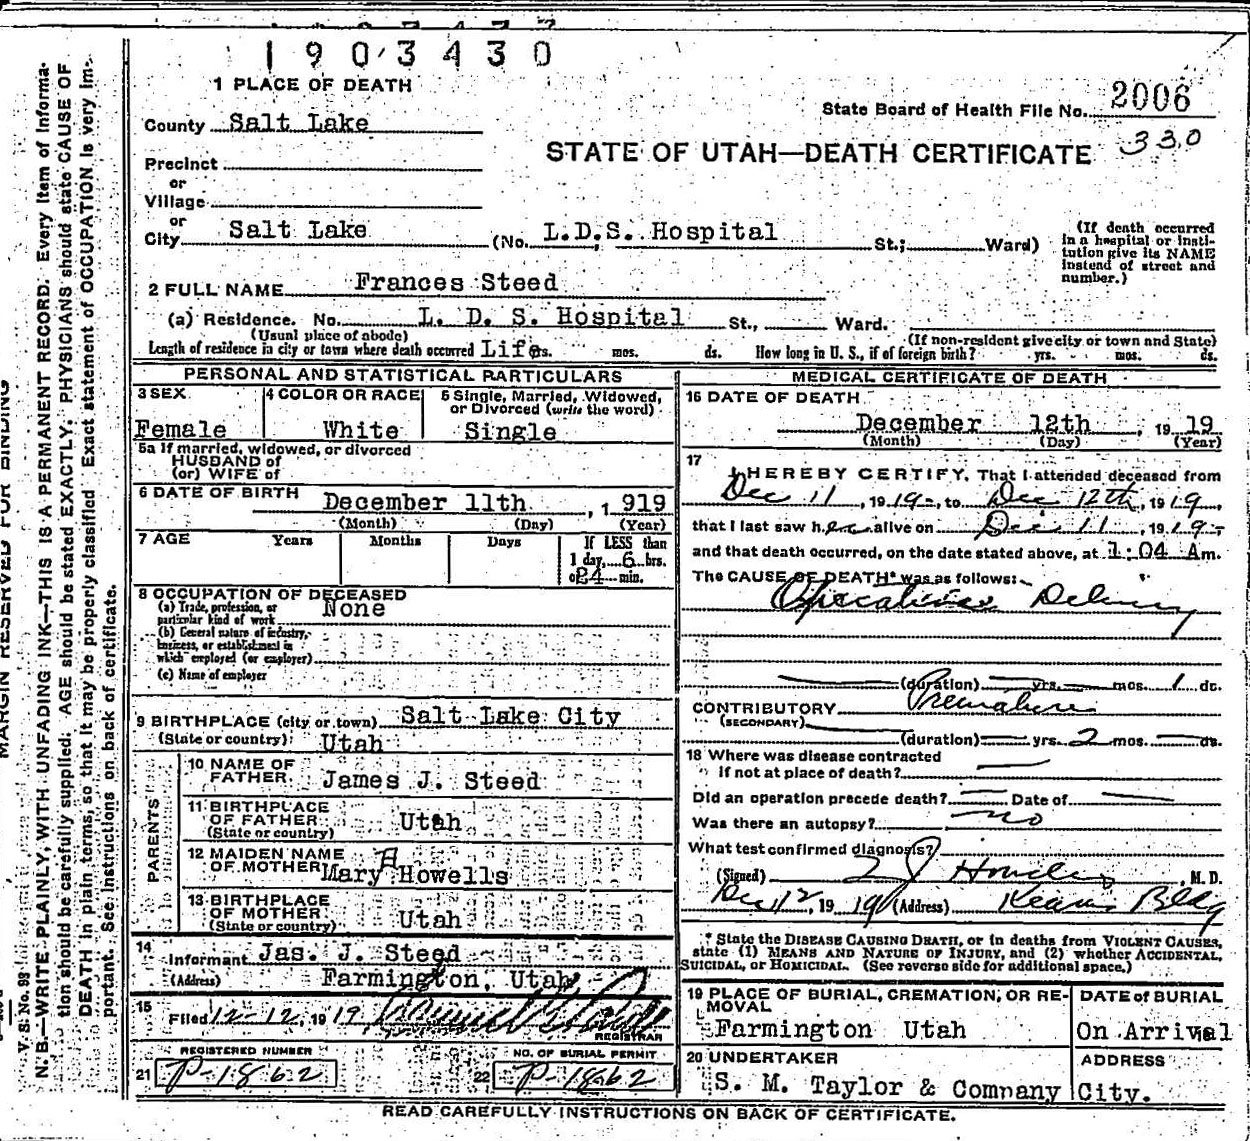 1903430
1 PLACE OF DEATH
State Board of Health File No. 2006
330
County Salt Lake
STATE OF UTAH—DEATH CERTIFICATE
Precinct
or
Village
or
City Salt Lake (No. L.D.S. Hospital St.; Ward)
(If death occurred in a hospital or insti-
tution give its NAME
instead of street and
number.)
2 FULL NAME Frances Steed
(a) Residence. No. L. D. S. Hospital St., Ward.
(Usual place of abode) (If non-resident give city or town and State)
Length of residence in city or town where death occurred Life yrs. mos. ds. How long in U. S., if of foreign birth? yrs. mos. ds.
PERSONAL AND STATISTICAL PARTICULARS
3 SEX
Female
4 COLOR OR RACE
White
5 Single, Married, Widowed,
or Divorced (write the word)
Single
5a If married, widowed, or divorced
HUSBAND of
(or) WIFE of
6 DATE OF BIRTH December 11th , 1919
(Month) (Day) (Year)
7 AGE Years Months Days If LESS than
1 day, 6 hrs.
or 24 min.
8 OCCUPATION OF DECEASED
(a) Trade, profession, or
particular kind of work None
(b) General nature of industry,
business, or establishment in
which employed (or employer)
(c) Name of employer
9 BIRTHPLACE (city or town) Salt Lake City
(State or country) Utah
PARENTS
10 NAME OF
FATHER James J. Steed
11 BIRTHPLACE
OF FATHER Utah
(State or country)
12 MAIDEN NAME
OF MOTHER Mary Howells
13 BIRTHPLACE
OF MOTHER Utah
(State or country)
14
Informant Jas. J. Steed
(Address) Farmington, Utah
15
Filed 12-12, 1919
REGISTRAR
REGISTERED NUMBER
21 P-1862
NO. OF BURIAL PERMIT
22 P-1862
MEDICAL CERTIFICATE OF DEATH
16 DATE OF DEATH
December 12th , 1919
(Month) (Day) (Year)
17
I HEREBY CERTIFY, That I attended deceased from
Dec 11 , 1919, to Dec 12th, 1919,
that I last saw her alive on Dec 11, 1919,
and that death occurred, on the date stated above, at 1:04 Am.
The CAUSE OF DEATH* was as follows:
Operative Delivery
(duration) yrs. mos. 1 ds.
CONTRIBUTORY Premature
(SECONDARY)
(duration) yrs. 2 mos. ds.
18 Where was disease contracted
if not at place of death?
Did an operation precede death? Date of
Was there an autopsy? no
What test confirmed diagnosis?
(Signed) M. D.
Dec 12, 1919 (Address) Kearns Bldg
* State the DISEASE CAUSING DEATH, or in deaths from VIOLENT CAUSES,
state (1) MEANS AND NATURE OF INJURY, and (2) whether ACCIDENTAL,
SUICIDAL, or HOMICIDAL. (See reverse side for additional space.)
19 PLACE OF BURIAL, CREMATION, OR RE-
MOVAL
Farmington Utah
DATE of BURIAL
On Arrival
20 UNDERTAKER
S. M. Taylor & Company
ADDRESS
City.
READ CAREFULLY INSTRUCTIONS ON BACK OF CERTIFICATE.
MARGIN RESERVED FOR BINDING
V. S. No. 98
N. B.—WRITE PLAINLY, WITH UNFADING INK—THIS IS A PERMANENT RECORD. Every item of informa-
tion should be carefully supplied. AGE should be stated EXACTLY. PHYSICIANS should state CAUSE OF
DEATH in plain terms, so that it may be properly classified. Exact statement of OCCUPATION is very im-
portant. See instructions on back of certificate.